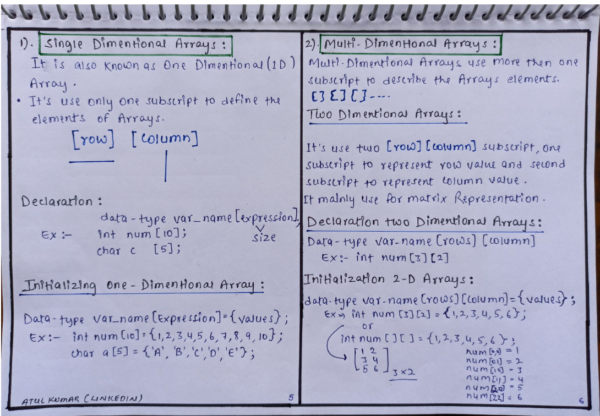 1). Single Dimentional Arrays :
It is also known as One Dimentional (1D)
Array.
• It's use only one subscript to define the
elements of Arrays.
[row] [column]
Declaration :
data-type var_name [expression]
size
Ex :- int num [10];
char c [5];
Initializing one - Dimentional Array :
Data-type var_name [Expression] = {values};
Ex :- int num [10] = {1,2,3,4,5,6,7,8,9,10};
char a[5] = {'A', 'B', 'C', 'D', 'E'};
ATUL KUMAR (LINKEDIN)
5
2). Multi-Dimentional Arrays :
Multi-Dimentional Arrays use more then one
subscript to describe the Arrays elements.
[] [] [] ----
Two Dimentional Arrays :
It's use two [row] [column] subscript, one
subscript to represent row value and second
subscript to represent column value.
It mainly use for matrix Representation.
Declaration two Dimentional Arrays :
Data-type var-name [rows] [column]
Ex :- int num [3] [2]
Initialization 2-D Arrays :
data-type var-name [rows] [column] = {values};
Ex int num [3] [2] = {1,2,3,4,5,6};
or
int num [ ] [ ] = {1,2,3,4,5,6};
1 2
3 4
5 6
3 x 2
= 1
= 2
= 3
num[11] = 4
= 5
num[22] = 6
6